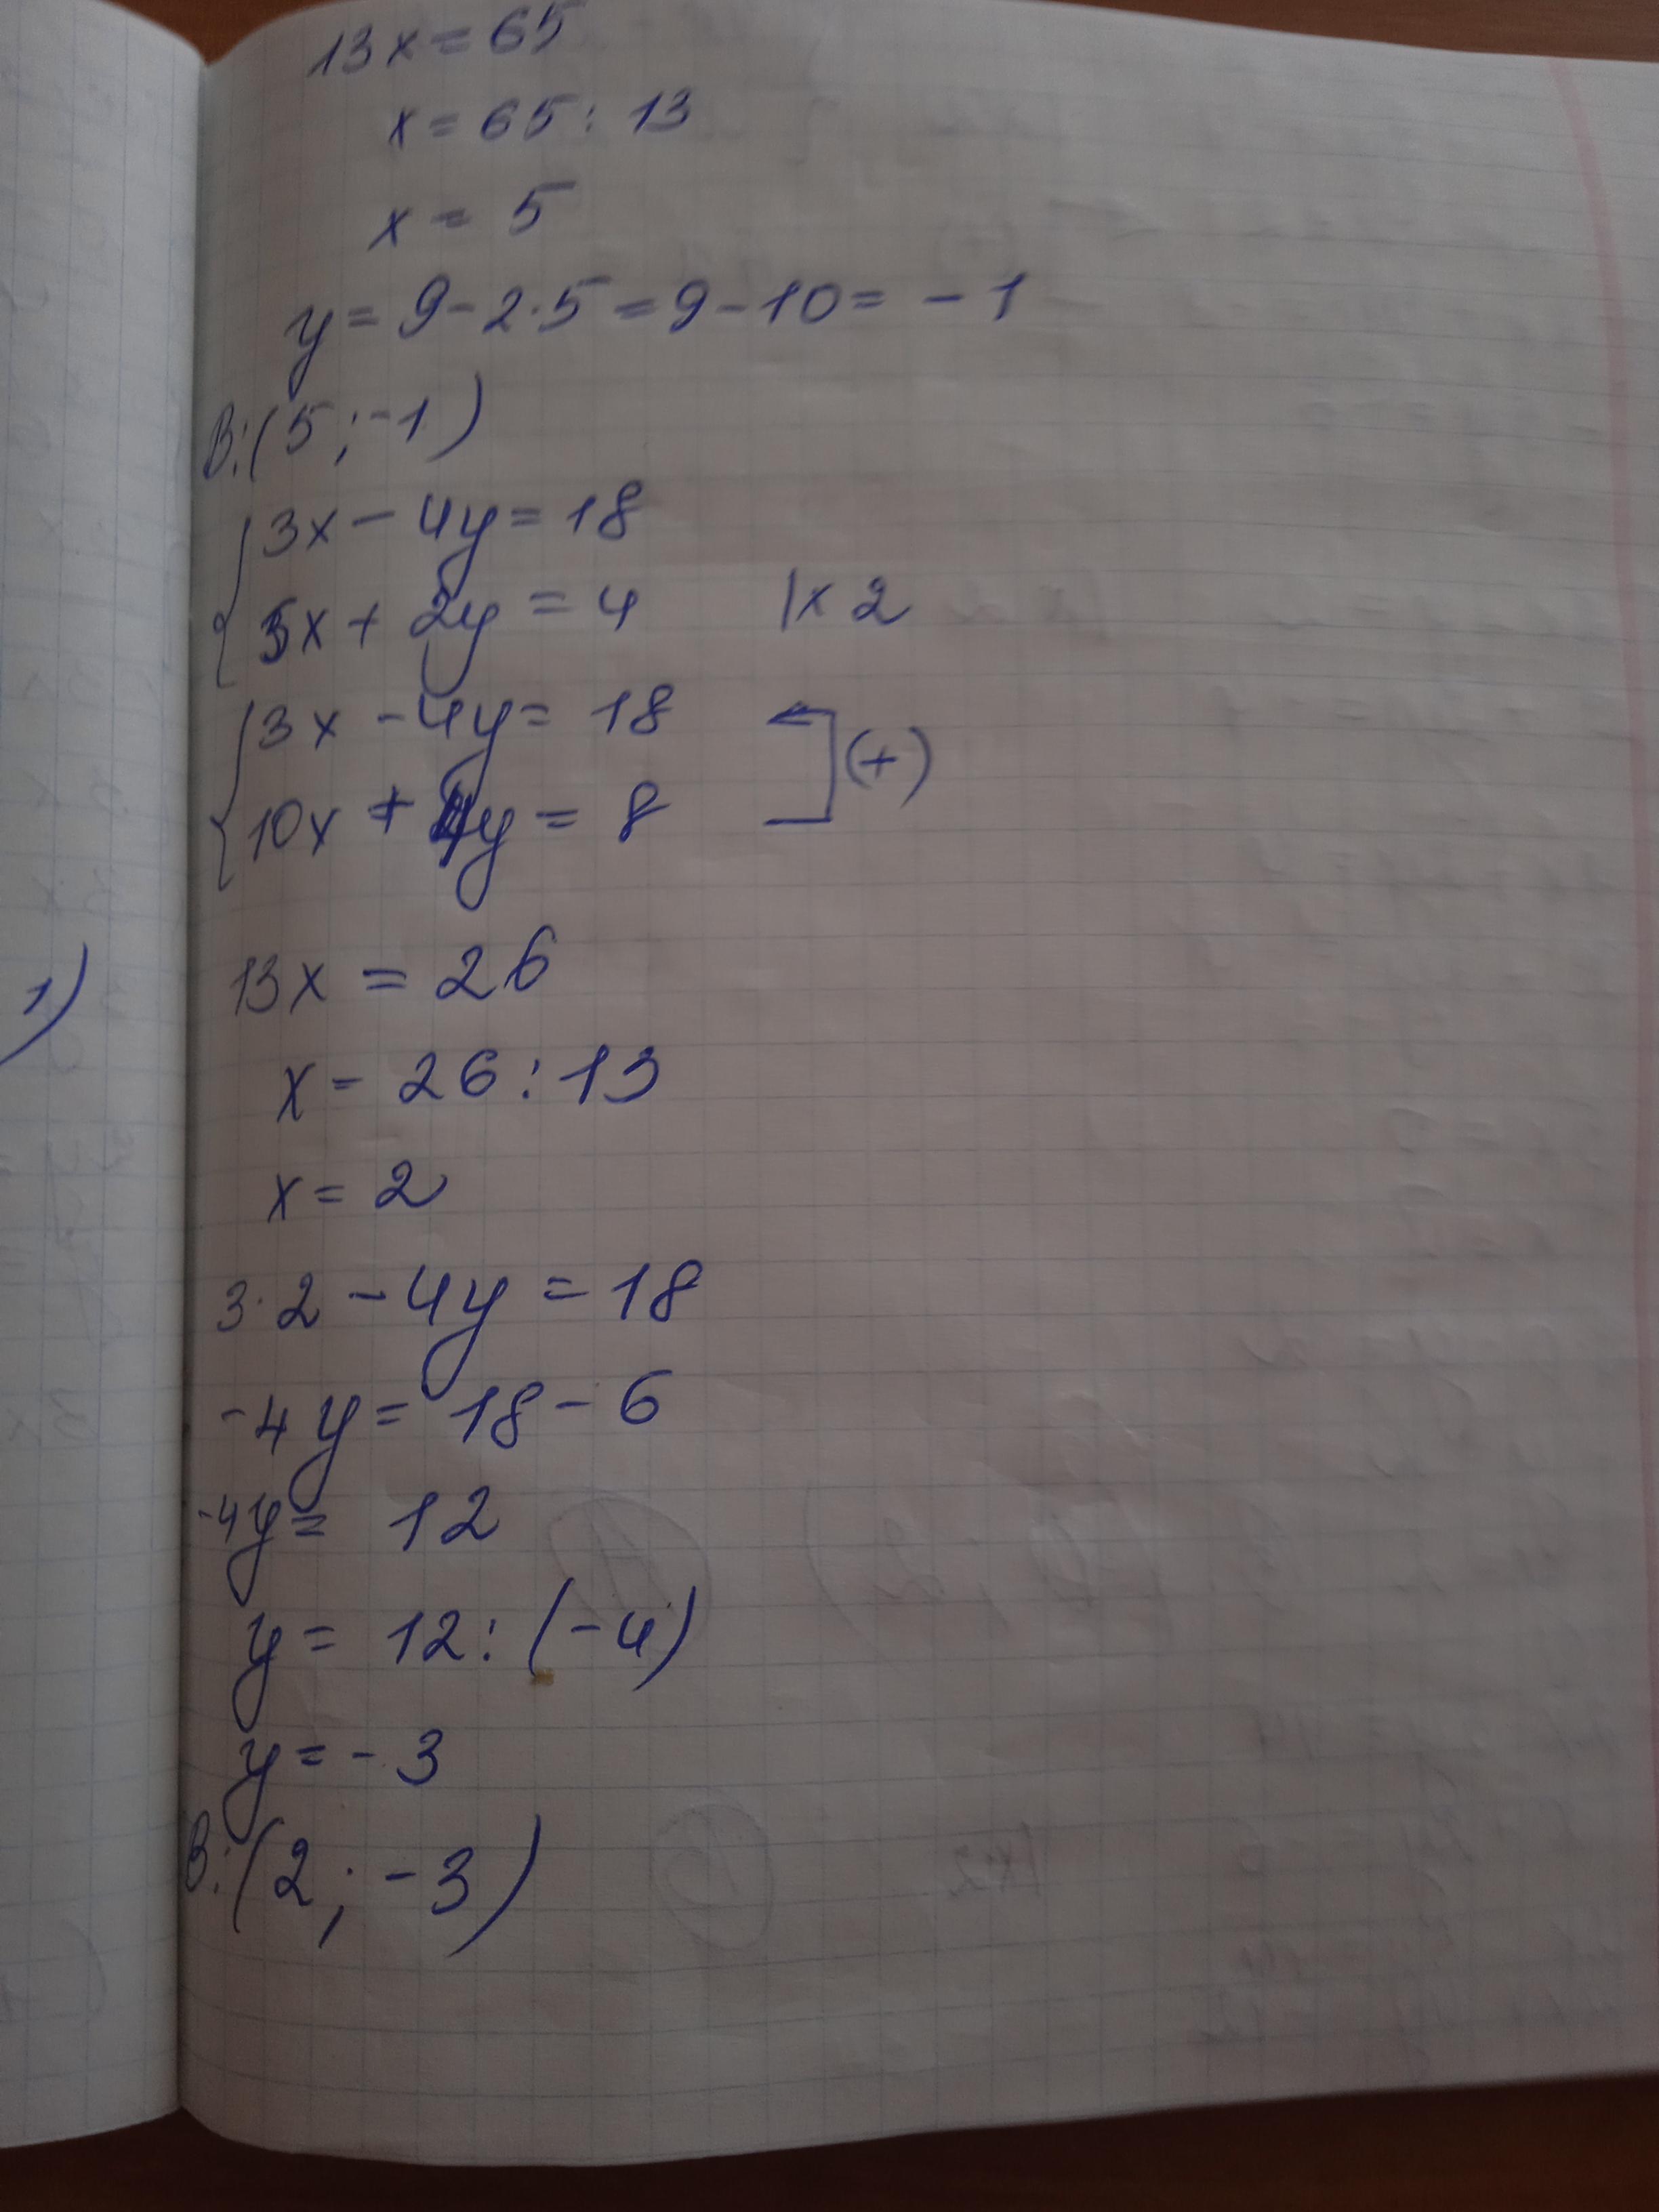 13x = 65
x = 65 : 13
x = 5
y = 9 - 2·5 = 9 - 10 = - 1
В: (5 ; -1)
3x - 4y = 18
5x + 2y = 4 | x 2
3x - 4y = 18
10x + 4y = 8 (+)
13x = 26
x = 26 : 13
1)
x = 2
3·2 - 4y = 18
-4y = 18 - 6
-4y = 12
y = 12 : (-4)
y = - 3
В: (2 ; -3)